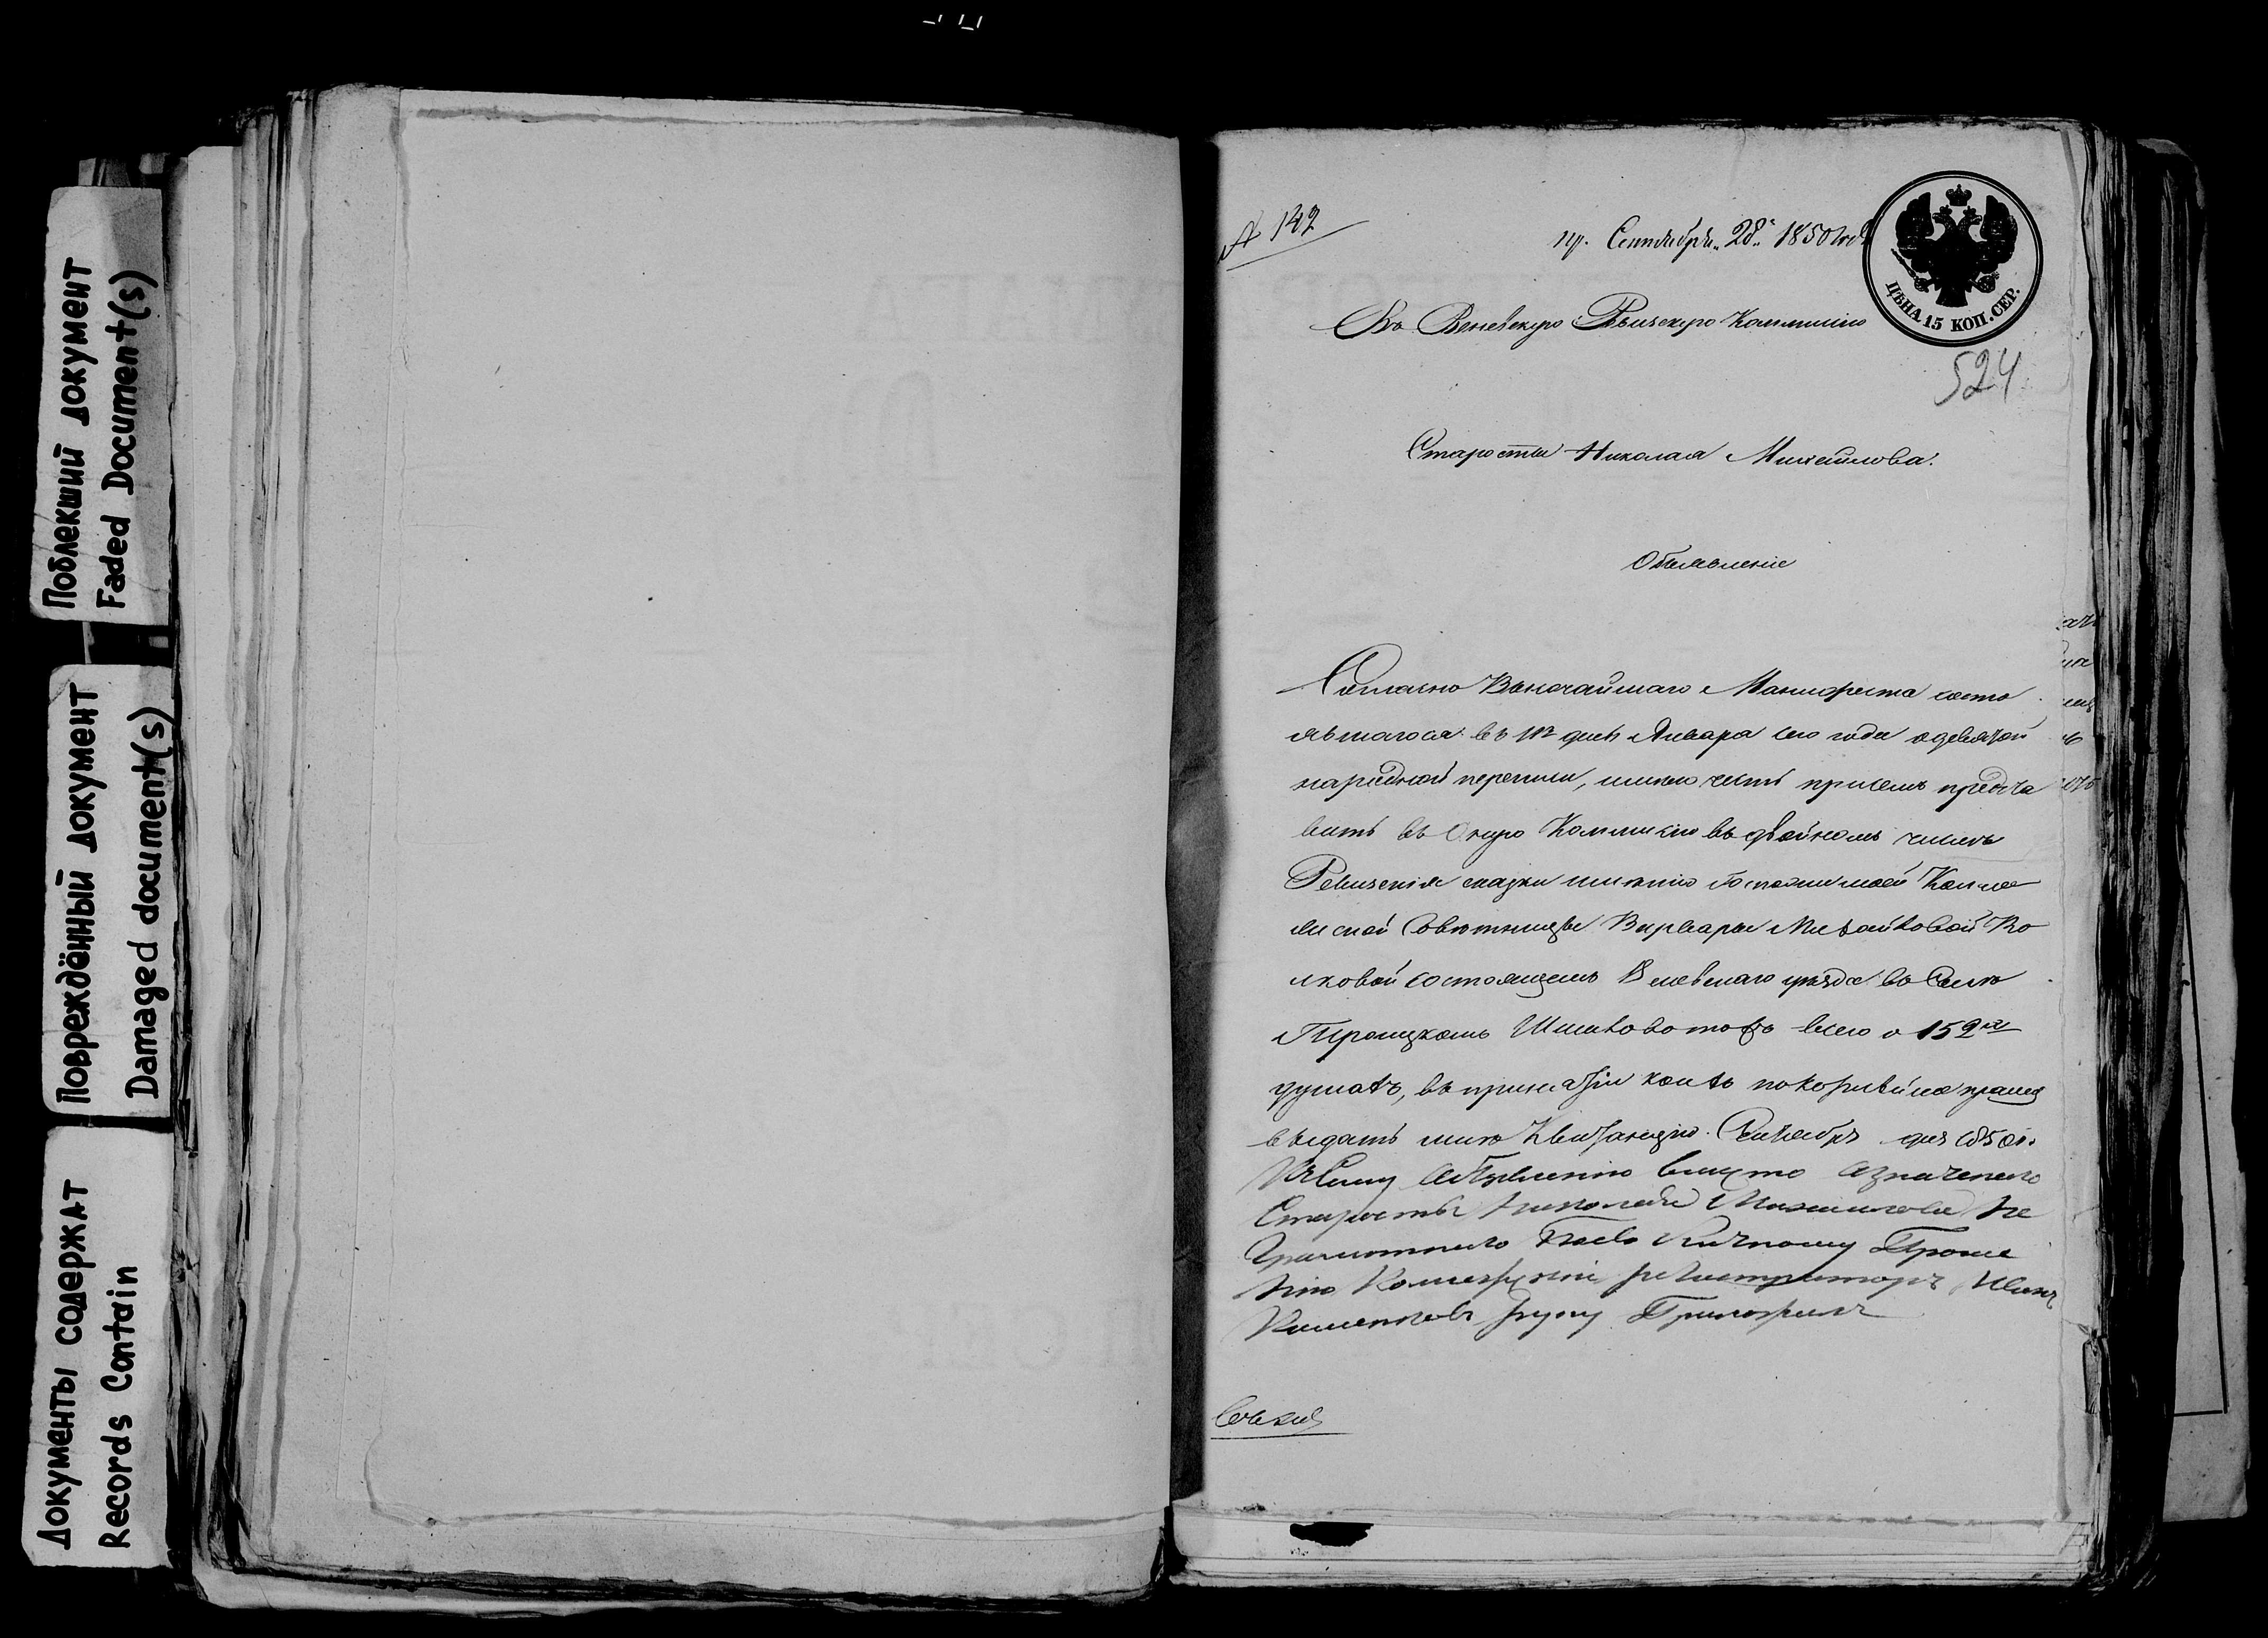 Поблекший документ
Faded Document(s)
Повреждённый документ
Damaged document(s)
Документы содержат
Records Contain
№ 142
пр. Сентября 28 1850 года
ЦѢНА 15 КОП. СЕР.
Въ Веневскую Ревизскую Коммисію
524
Старосты Николая Михайлова.
Объявленіе
Согласно Высочайшаго Манифеста состо
явшагося въ 11й день Января сего года о девятой
народной переписи, имѣю честь при семъ предста
вить въ Оную Коммисію въ двойномъ числѣ
Ревизскія сказки имѣнію Госпожи моей Колле
жской Совѣтницы Варвары Во
лковой состоящемъ Веневскаго уѣзда въ Селѣ
Троицкомъ Шишково тожъ всего о 152хъ
душахъ, въ принятіи коихъ покорнѣйше прошу
выдать мнѣ Квитанцію. Сентября дня 1850 г.
Къ сему Объявленію вместо означеного
Старосты Николая Михайлова не
Грамотнаго По его Личному Проше
нію Колежскій регистраторъ Иванъ
руку Приложилъ